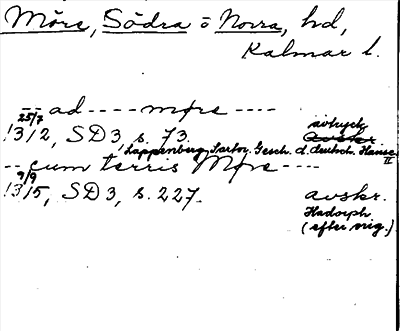 Möre, Södra o Norra, hd,
Kalmar l.
-- ad ---- møre ----
25/7
1312, SD 3, s. 73. avtryck Avskr.
Lappenberg, Sartor. Gesch. d. deutsch. Hanse II
-- cum terris Møre ---
9/9
1315, SD 3, s. 227. avskr.
Hadorph
(efter orig.)